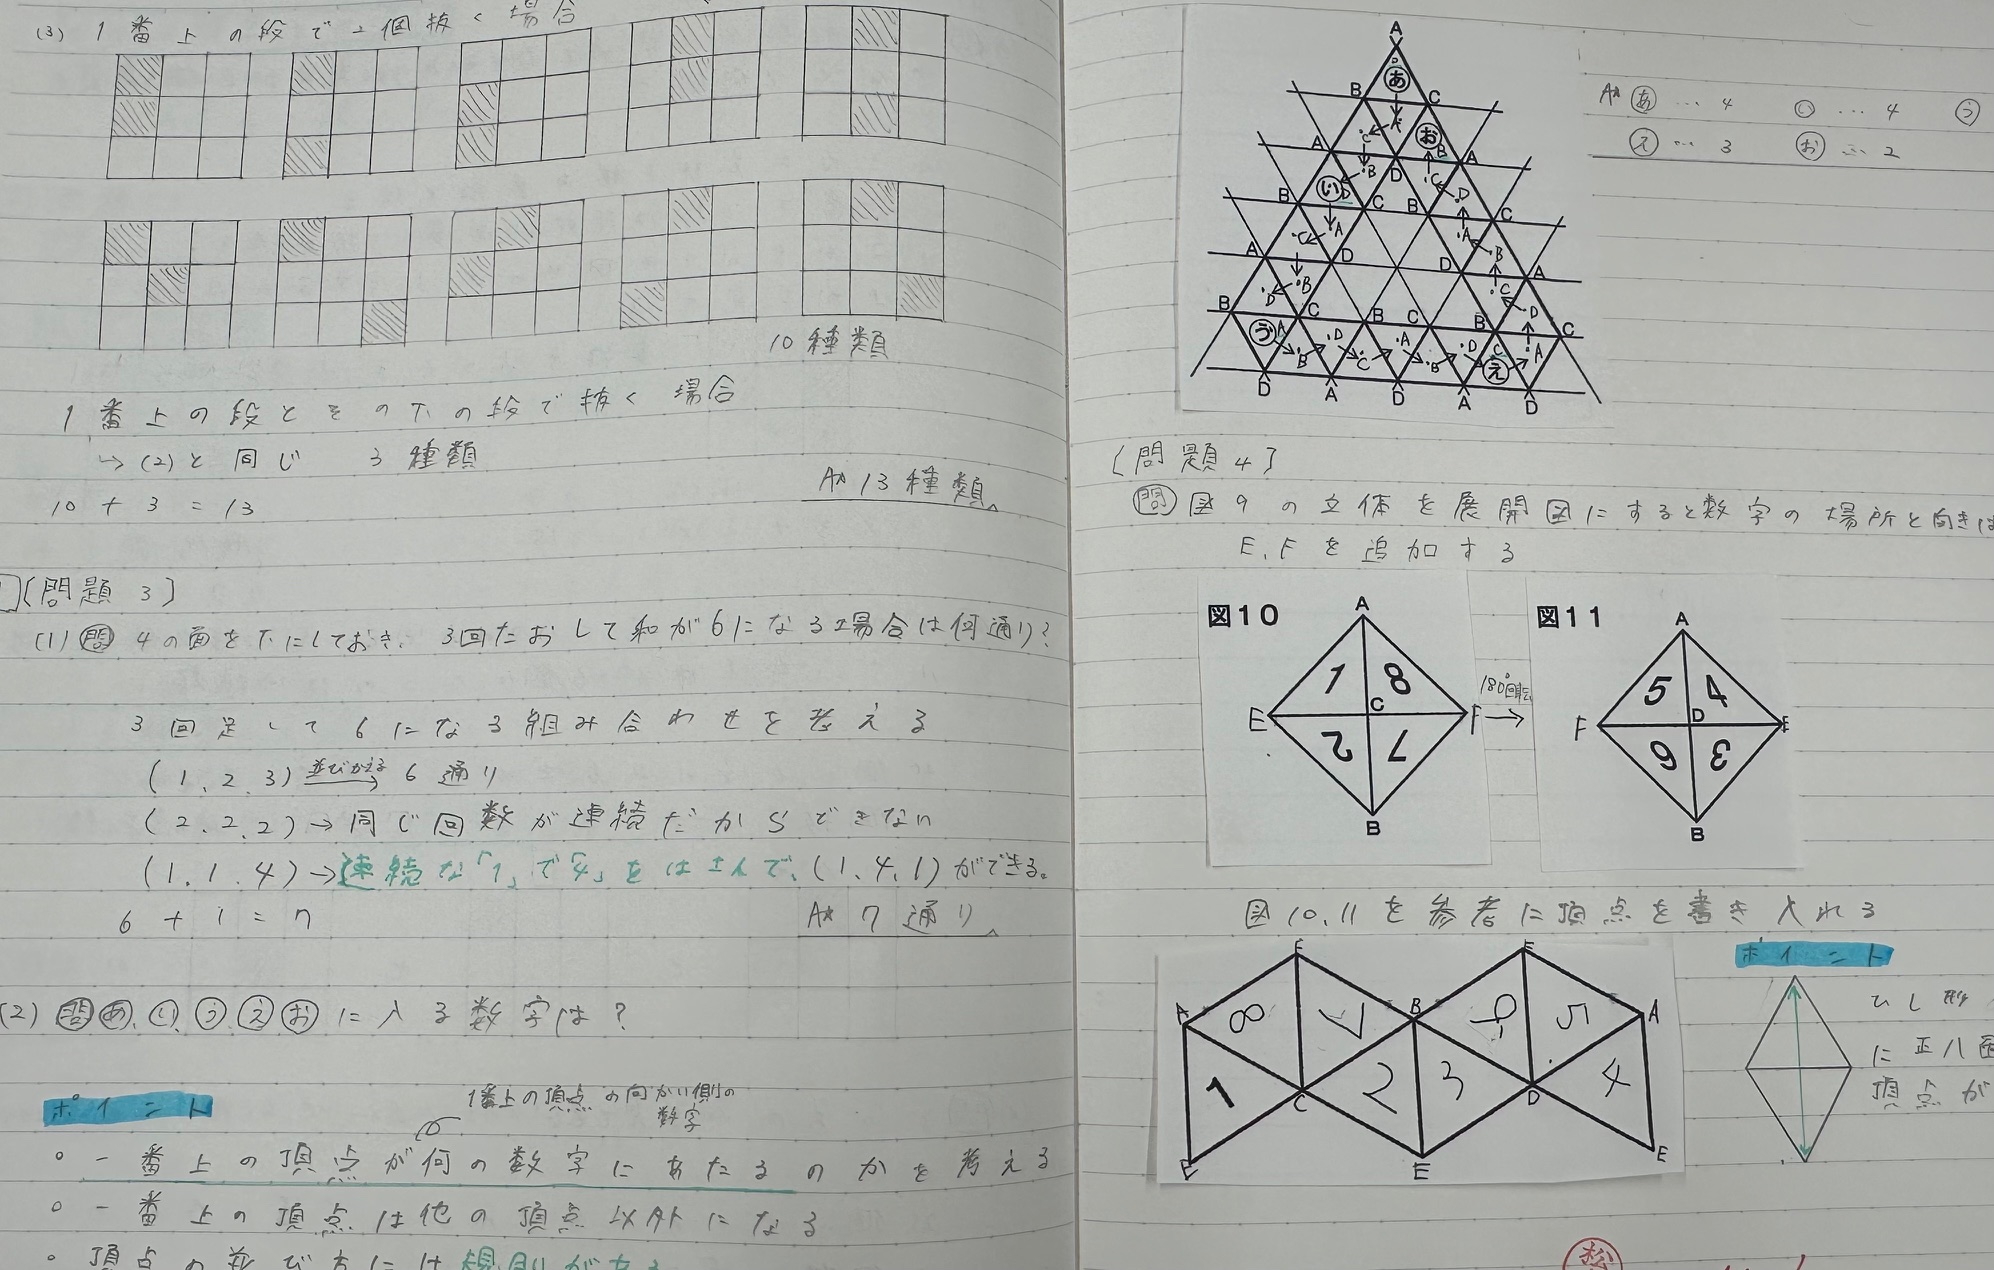 (3) 1番上の段で2個抜く場合
10種類
1番上の段とその下の段で抜く場合
↳(2)と同じ 3種類
A* 13種類
10 + 3 = 13
[問題3]
(1) 問 4の面を下にしておき、3回たおして和が6になる場合は何通り?
3回足して6になる組み合わせを考える
(1, 2, 3) 並びかえる→ 6通り
(2, 2, 2)→同じ回数が連続だからできない
(1, 1, 4)→連続な「1」で「4」をはさんで、(1, 4, 1)ができる。
6 + 1 = 7
A* 7通り
(2) 問 あ、い、う、え、おに入る数字は?
ポイント
1番上の頂点の向かい側の数字
○一番上の頂点が何の数字にあたるのかを考える
○一番上の頂点は他の頂点以外になる
○頂点の並び方には規則がある
A
あ
B C
お
A D A
い
B C B C
A D D A
B C B C B C
う え
D A D A D
A* あ … 4 い … 4 う
え … 3 お … 2
[問題4]
問 図9の立体を展開図にすると数字の場所と向きは
E, Fを追加する
図10
A
1 8
E C F
2 7
B
180°回転
→
図11
A
5 4
F D E
6 3
B
図10, 11を参考に頂点を書き入れる
F F
A 8 7 B 6 5 A
1 C 2 3 D 4
E E E
ポイント
ひし形
に正八面
頂点が
松